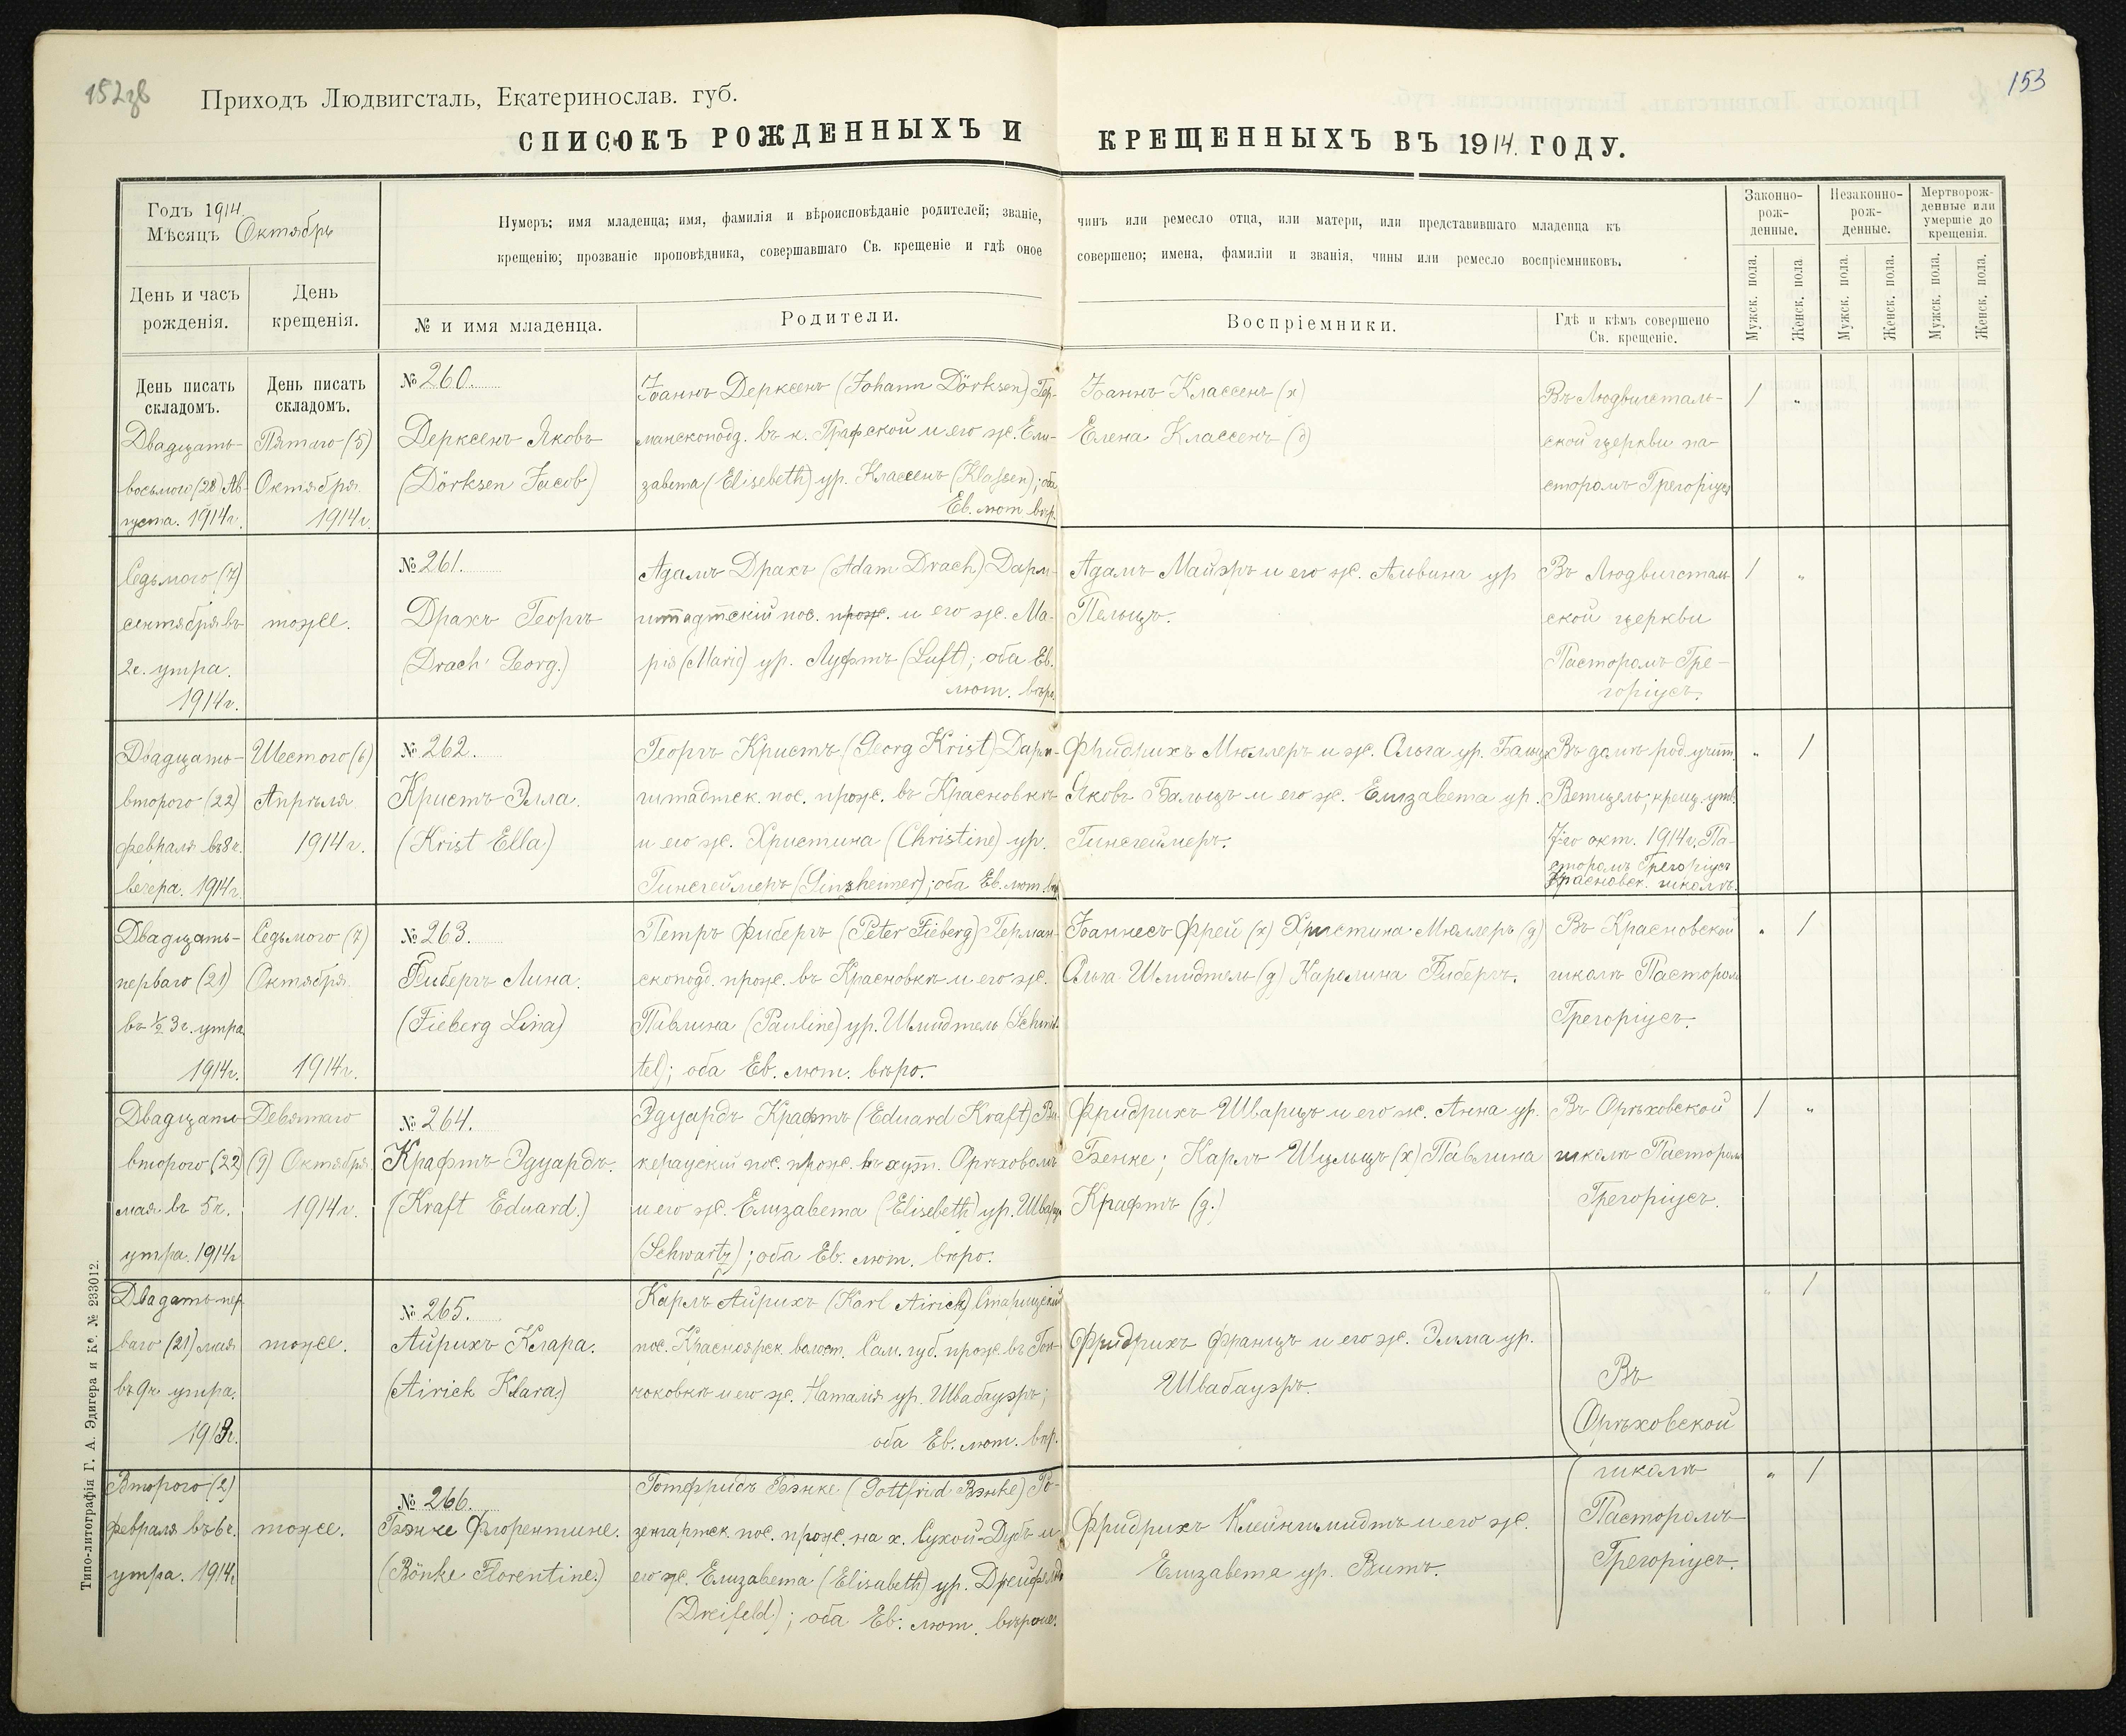 152зв
153
Приходъ Людвигсталь, Екатеринослав. губ.
СПИСОКЪ РОЖДЕННЫХЪ И КРЕЩЕННЫХЪ ВЪ 1914. ГОДУ.
Годъ 1914
Мѣсяцъ Октябрь
День и часъ
рожденія.
День
крещенія.
Нумеръ; имя младенца; имя, фамилія и вѣроисповѣданіе родителей; званіе, чинъ или ремесло отца, или матери, или представившаго младенца къ
крещенію; прозваніе проповѣдника, совершавшаго Св. крещеніе и гдѣ оное совершено; имена, фамиліи и званія, чины или ремесло воспріемниковъ.
№ и имя младенца.
Родители.
Воспріемники.
Гдѣ и кѣмъ совершено
Св. крещеніе.
Законно-
рож-
денные.
Незаконно-
рож-
денные.
Мертворож-
денные или
умершіе до
крещенія.
Мужск. пола.
Женск. пола
Мужск. пола.
Женск. пола.
Мужск. пола.
Женск. пола.
День писать
складомъ.
Двадцать-
восьмого (28) Ав-
густа. 1914г.
День писать
складомъ.
Пятаго (5)
Октября
1914г.
№ 260.
Дерксенъ Яковъ
(Dörksen Jacob)
Іоаннъ Дерксенъ (Johann Dörksen) Гер-
манскопод. въ к. Графской и его ж. Ели-
завета (Elisebeth) ур. Классенъ (Klassen); оба
Ев. лют. вѣр.
Іоаннъ Классенъ (х)
Елена Классенъ (д)
Въ Людвигсталь-
ской церкви па-
сторомъ Грегоріусъ
1 „
Седьмого (7)
сентября въ
2ч. утра.
1914г.
тоже.
№ 261.
Драхъ Георгъ
(Drach Georg.)
Адамъ Драхъ (Adam Drach) Дарм-
штадтскій пос. прож. и его ж. Ма-
рія (Marie) ур. Луфтъ (Luft); оба Ев.
лют. вѣр.
Адамъ Майэръ и его ж. Альвина ур
Пельцъ.
Въ Людвигсталь
ской церкви
Пасторомъ Гре-
горіусъ.
1 „
Двадцать-
второго (22)
февраля въ 8ч.
вечера. 1914г.
Шестого (6)
Апрѣля
1914г.
№ 262.
Кристъ Элла.
(Krist Ella)
Георгъ Кристъ (Georg Krist) Дарм-
штадтск. пос. прож. въ Красновкѣ
и его ж. Христина (Christine) ур.
Гинсгеймеръ (Ginsheimer); оба Ев. лют. вѣр
Фридрихъ Мюллеръ и ж. Ольга ур. Бальцъ
Яковъ Бальцъ и его ж. Елизавета ур.
Гинсгеймеръ.
Въ домѣ род. учит.
Ветцель; крещ. утв.
7го окт. 1914г. Па-
сторомъ Грегоріусъ
Красновск. школѣ.
„ 1
Двадцать-
перваго (21)
въ ½ 3ч. утра
1914г.
Седьмого (7)
Октября
1914г.
№ 263.
Фибергъ Лина.
(Fieberg Lina)
Петръ Фибергъ (Peter Fieberg) Герман-
скопод. прож. въ Красновкѣ и его ж.
Павлина (Pauline) ур. Шмидтель (Schmid-
tel); оба Ев. лют. вѣро.
Іоаннесъ Фрей (х) Христина Мюллеръ (д)
Ольга Шмидтель (д) Каролина Фибергъ.
Въ Красновской
школѣ Пасторомъ
Грегоріусъ.
„ 1
Двадцать
второго (22)
мая въ 5ч.
утра. 1914г
Девятаго
(9) Октября
1914г.
№ 264.
Крафтъ Эдуардъ.
(Kraft Eduard.)
Эдуардъ Крафтъ (Eduard Kraft) Ви-
кераускій пос. прож. въ хут. Орѣховомъ
и его ж. Елизавета (Elisebeth) ур. Шварцъ
(Schwartz); оба Ев. лют. вѣро.
Фридрихъ Шварцъ и его ж. Анна ур.
Бенке; Карлъ Шульцъ (х) Павлина
Крафтъ (д.)
Въ Орѣховской
школѣ Пасторомъ
Грегоріусъ.
1 „
Двадать пер
ваго (21) мая
въ 9ч. утра.
1913г.
тоже.
№ 265.
Айрихъ Клара.
(Airich Klara.)
Карлъ Айрихъ (Karl Airich) Старицкій
пос. Красноярск. волост. Сам. губ. прож. въ Гон-
чоковкѣ и его ж. Наталія ур. Швабауэръ;
оба Ев. лют. вѣр.
Фридрихъ Францъ и его ж. Эльма ур.
Швабауэръ.
Въ
Орѣховской
„ 1
Второго (2)
февраля въ 6ч.
утра. 1914г
тоже.
№ 266.
Бэнке Флорентине.
(Bönke Florentine.)
Готфридъ Бэнке (Gottfrid Bэnke) Ро-
зенгартск. пос. прож. на х. Сухой-Дубъ и
его ж. Елизавета (Elisabeth) ур. Дрейфельдъ
(Dreifeld); оба Ев. лют. вѣроис.
Фридрихъ Клейншмидтъ и его ж.
Елизавета ур. Витъ.
школѣ
Пасторомъ
Грегоріусъ.
„ 1
Типо-литографія Г. А. Эдигера и Кº. № 233012.